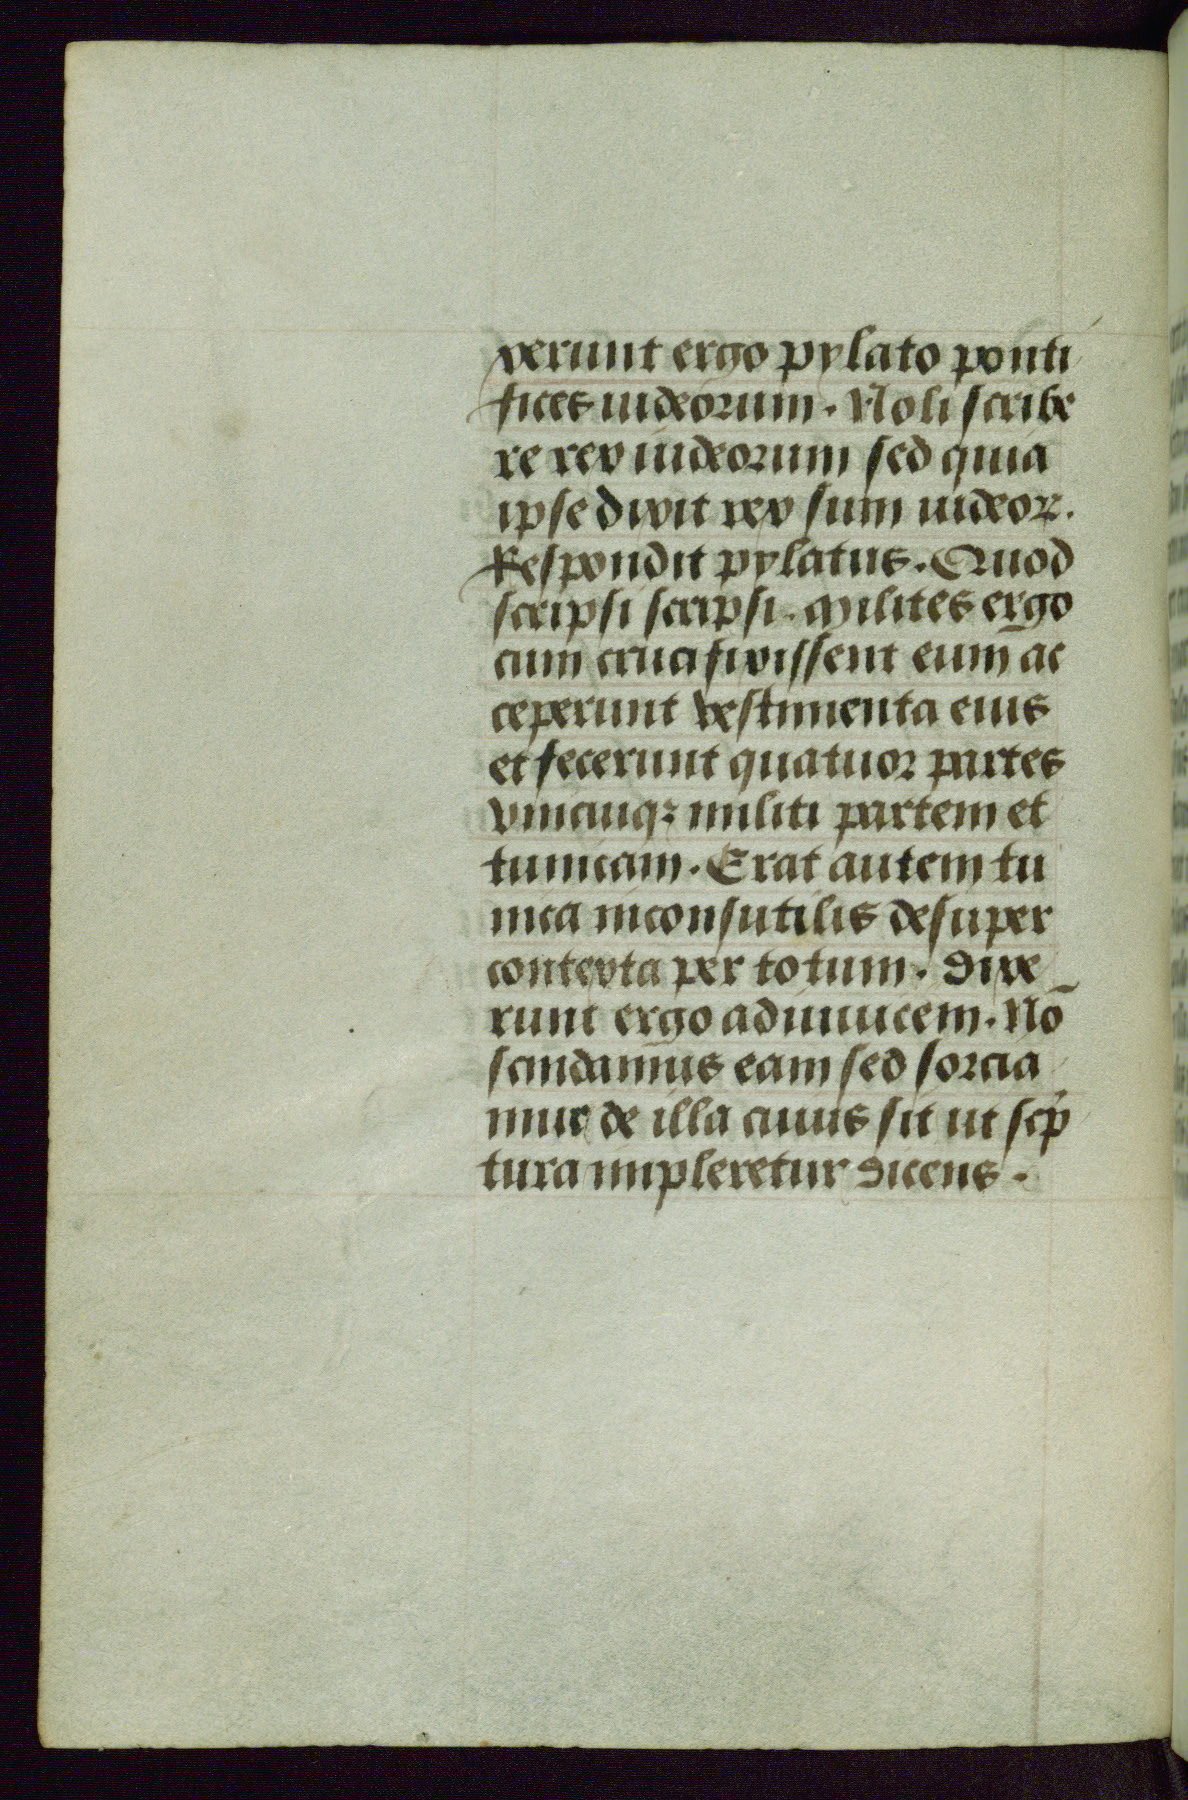 xerunt ergo pylato ponti
fices iudeorum. Noli scribe
re rex iudeorum sed quia
ipse dixit rex sum iudeoꝝ.
Respondit pylatus. Quod
scripsi scripsi. Milites ergo
cum crucifixissent eum ac
ceperunt vestimenta eius
et fecerunt quatuor partes
vnicuiqꝫ militi partem et
tunicam. Erat autem tu
nica inconsutilis desuper
contexta per totum. Dixe
runt ergo adinuicem. Nō
scindamus eam sed sorcia
mur de illa cuius sit ut scp̄
tura impleretur dicens.